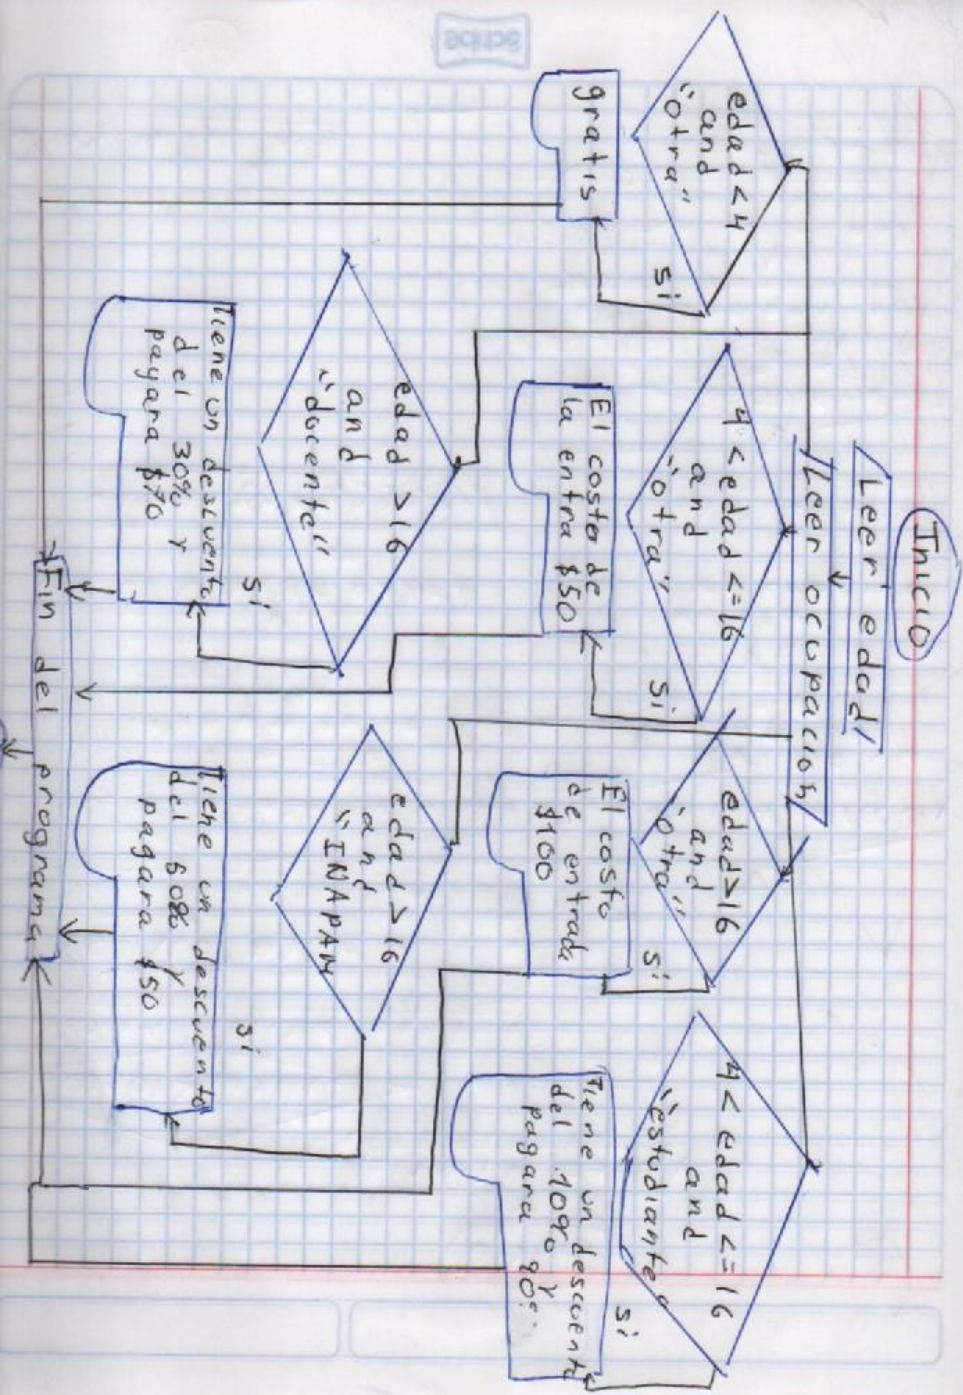 Inicio
Leer edad
Leer ocupacion
edad < 4
and
"otra"
si
gratis
4 < edad <= 16
and
"otra"
si
El costor de
la entra $50
edad > 16
and
"otra"
si
El costo
de entrada
$100
4 < edad <= 16
and
"estudiante"
si
Tiene un descuento
del 10% y
pagara 90
edad > 16
and
"docente"
si
Tiene un descuento
del 30% y
pagara $70
edad > 16
and
"INAPAM
si
Tiene un descuento
del 50% y
pagara $50
Fin del programa
scribe